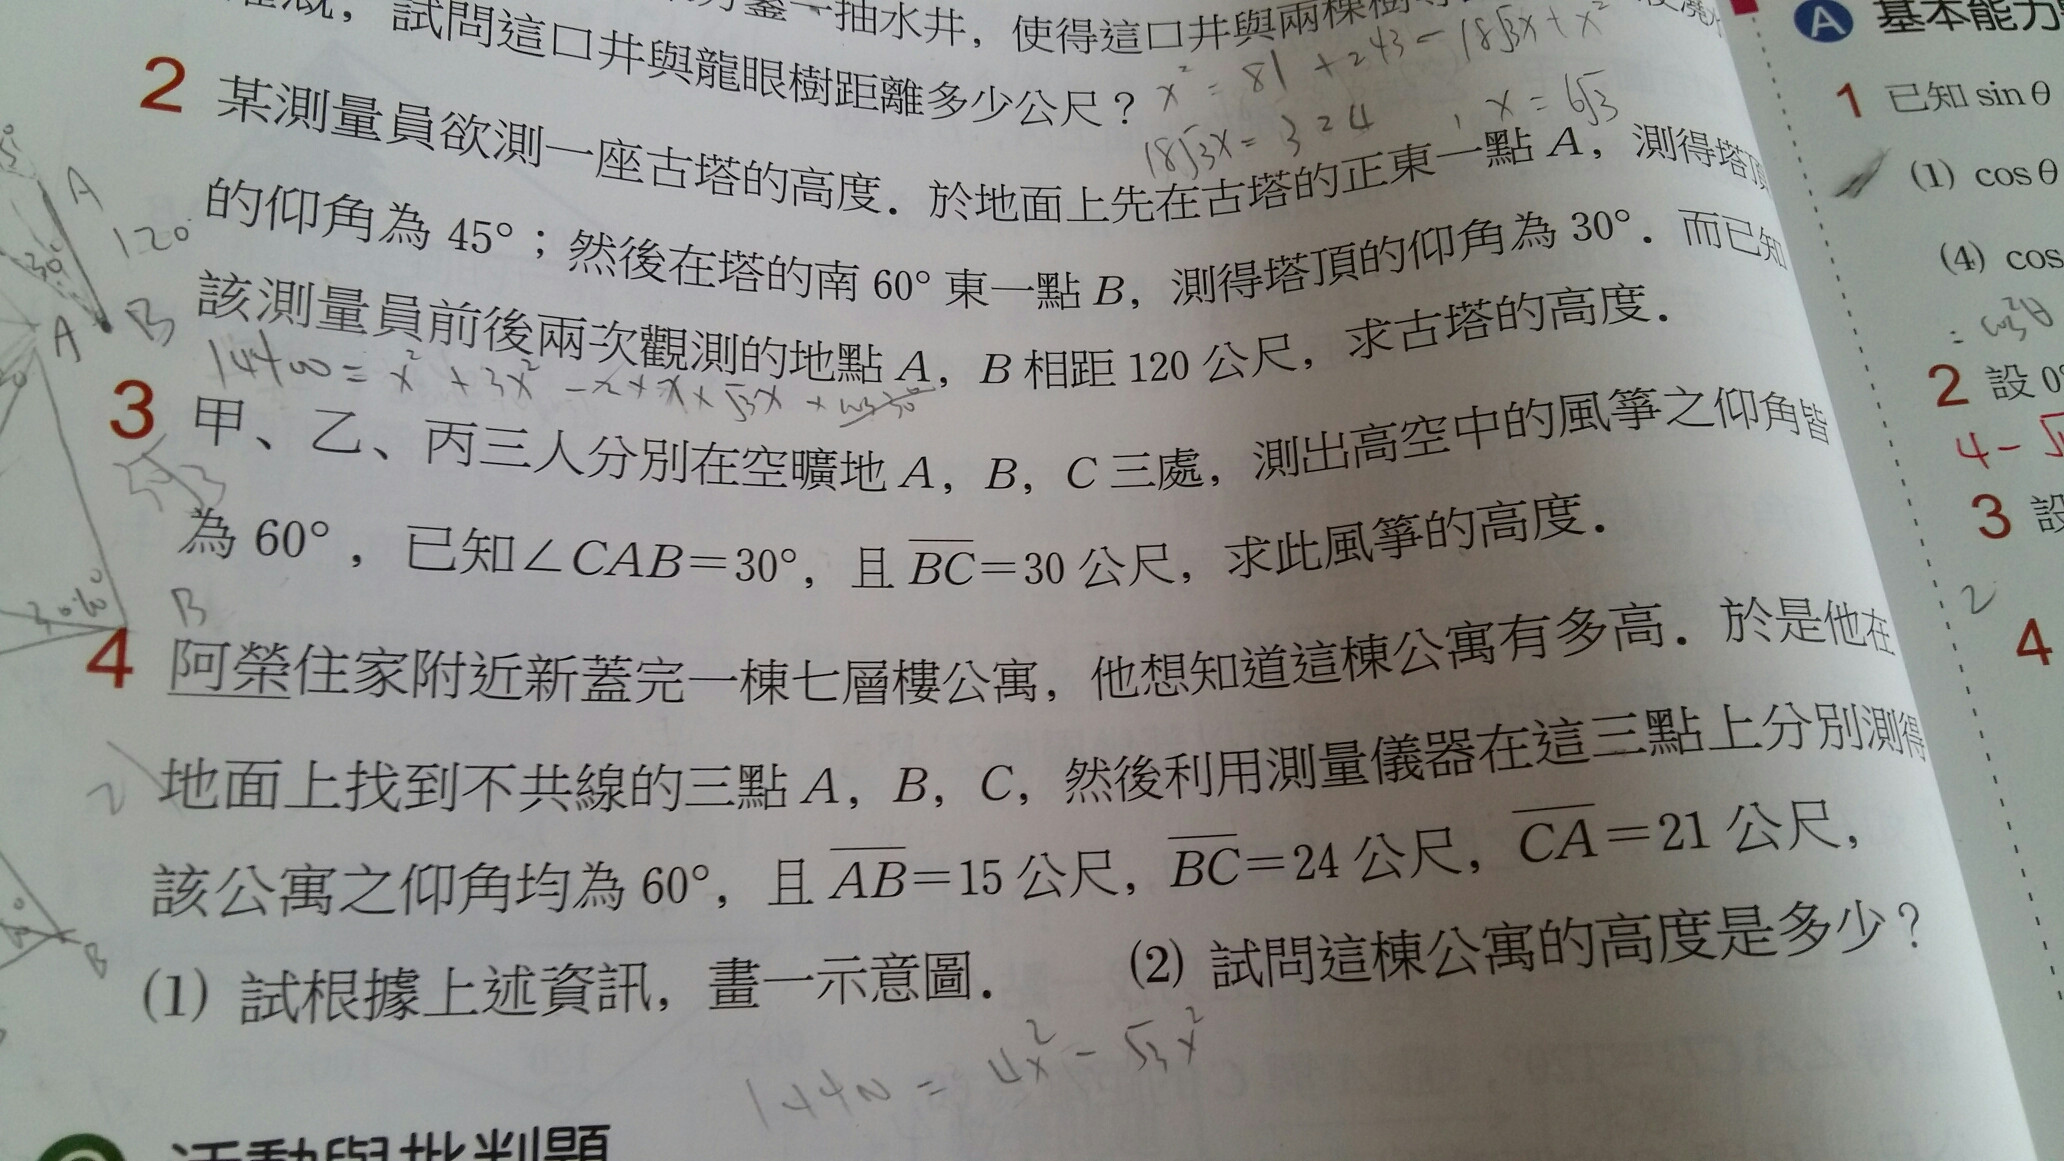 試問這口井與龍眼樹距離多少公尺？
抽水井，使得這口井與兩棵樹
x² = 81 + 243 - 18√3x + x²
18√3x = 324, x = 6√3
2 某測量員欲測一座古塔的高度．於地面上先在古塔的正東一點 A，測得塔頂
的仰角為 45°；然後在塔的南 60° 東一點 B，測得塔頂的仰角為 30°．而已知
該測量員前後兩次觀測的地點 A，B 相距 120 公尺，求古塔的高度．
14400 = x² + 3x² - 2 × x × √3x × cos30°
3 甲、乙、丙三人分別在空曠地 A，B，C 三處，測出高空中的風箏之仰角皆
為 60°，已知∠CAB=30°，且 BC=30 公尺，求此風箏的高度．
4 阿榮住家附近新蓋完一棟七層樓公寓，他想知道這棟公寓有多高．於是他在
地面上找到不共線的三點 A，B，C，然後利用測量儀器在這三點上分別測得
該公寓之仰角均為 60°，且 AB=15 公尺，BC=24 公尺，CA=21 公尺，
(1) 試根據上述資訊，畫一示意圖． (2) 試問這棟公寓的高度是多少？
= 4x² - √3x²
活動與批判題
A
120
30°
B
A
B
B
A 基本能力
1 已知 sin θ
(1) cos θ
(4) cos
= cos²θ
2 設 0°
4 - √
3 設
2
4